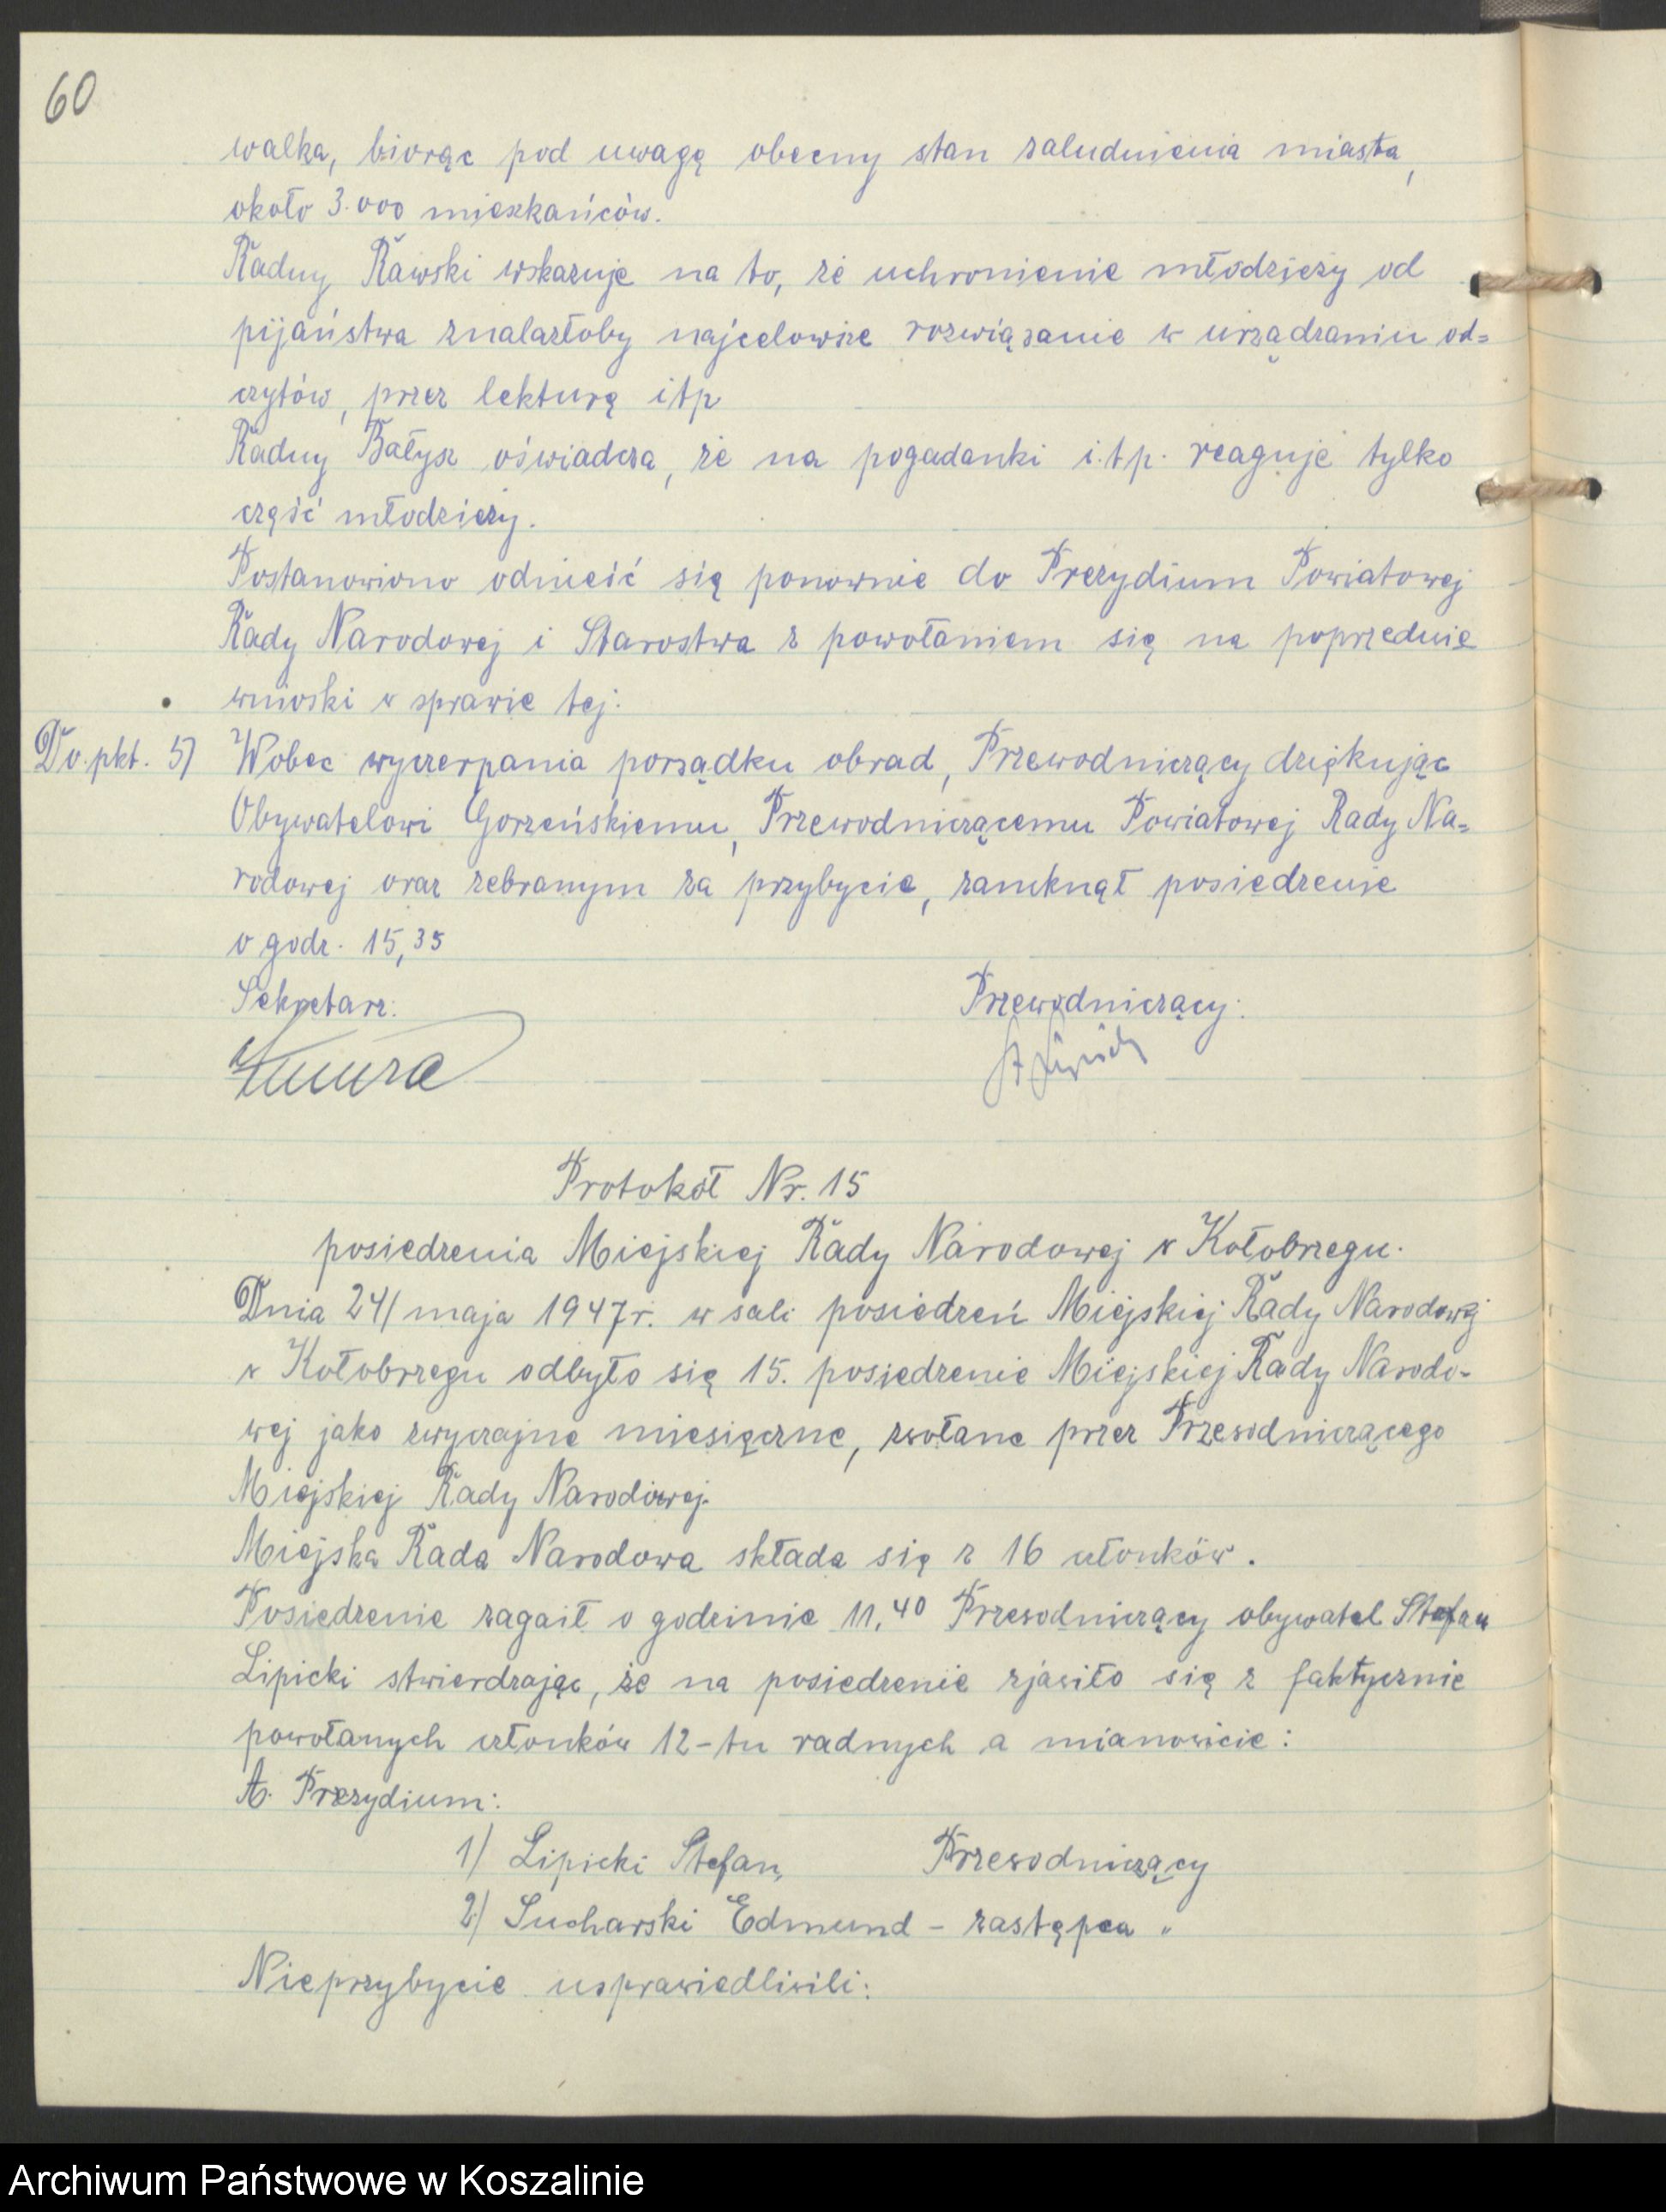 60
walka, biorąc pod uwagę obecny stan zaludnienia miasta,
około 3.000 mieszkańców.
Radny Rawski wskazuje na to, że uchronienie młodzieży od
pijaństwa znalazłoby najcelowsze rozwiązanie w urządzaniu od=
czytów, przez lekturę itp
Radny Bałysz oświadcza, że na pogadanki i.t.p. reaguje tylko
część młodzieży.
Postanowiono odnieić się ponownie do Prezydium Powiatowej
Rady Narodowej i Starostwa z powołaniem się na poprzednie
wnioski w sprawie tej.
Do pkt. 5) Wobec wyczerpania porządku obrad, Przewodniczący dziękując
Obywatelowi Gorzeńskiemu, Przewodniczącemu Powiatowej Rady Na=
rodowej oraz zebranym za przybycie, zamknął posiedzenie
o godz. 15,35
Sekretarz: Przewodniczący:
Protokół Nr. 15
posiedzenia Miejskiej Rady Narodowej w Kołobrzegu.
Dnia 24/ maja 1947 r. w sali posiedzeń Miejskiej Rady Narodowej
w Kołobrzegu odbyło się 15. posiedzenie Miejskiej Rady Narodo-
wej jako zwyczajne miesięczne, zwołane przez Przewodniczącego
Miejskiej Rady Narodowej.
Miejska Rada Narodowa składa się z 16 członków.
Posiedzenie zagaił o godzinie 11,40 Przewodniczący obywatel Stefan
Lipicki stwierdzając, że na posiedzenie zjawiło się z faktycznie
powołanych członków 12-tu radnych a mianowicie:
A. Prezydium:
1) Lipicki Stefan, Przewodniczący
2) Sucharski Edmund - zastępca "
Nieprzybycie usprawiedliwili:
Archiwum Państwowe w Koszalinie